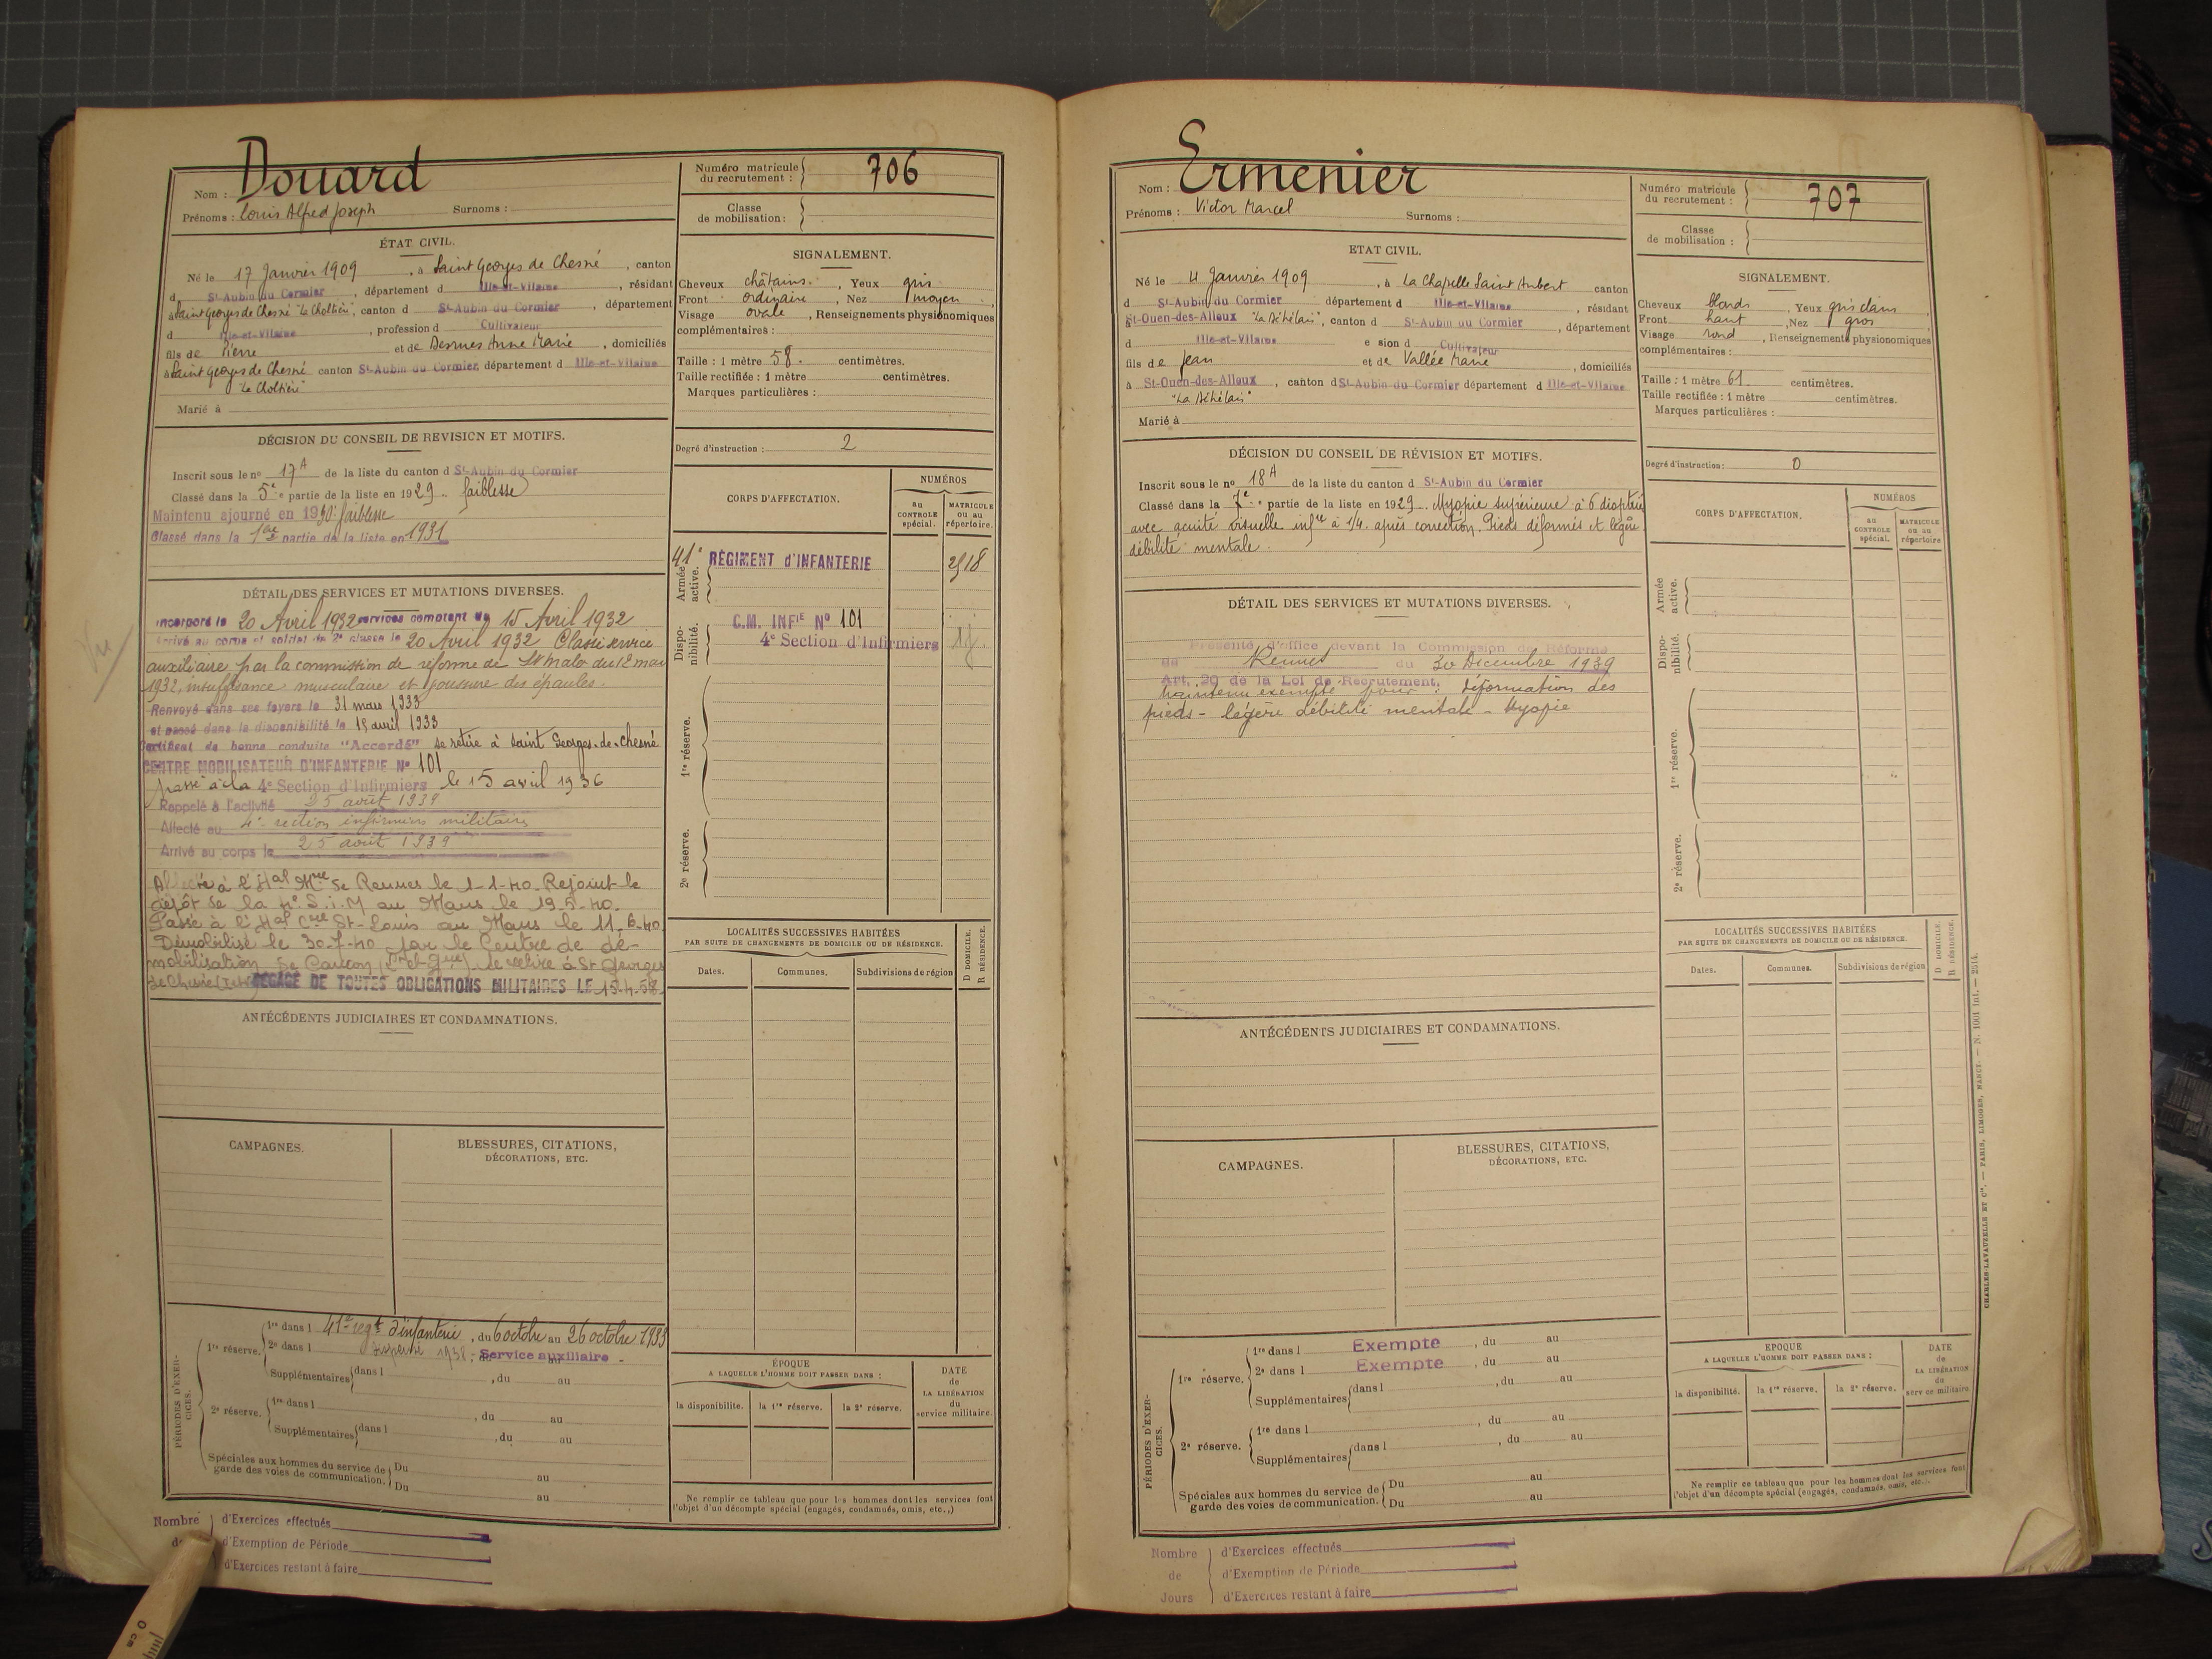 Nom : Douard
Prénoms : Louis Alfred Joseph Surnoms :
Numéro matricule du recrutement : 706
Classe de mobilisation :
ÉTAT CIVIL.
Né le 17 Janvier 1909, à Saint Georges de Chesné, canton
d St-Aubin du Cormier, département d Ille-et-Vilaine, résidant
à Saint Georges de Chesné, canton d St-Aubin du Cormier, département
d Ille-et-Vilaine, profession d Cultivateur
fils de Pierre et de Desrues Anne Marie, domiciliés
à Saint Georges de Chesné canton St-Aubin du Cormier, département d Ille-et-Vilaine
Marié à
SIGNALEMENT.
Cheveux châtains, Yeux gris
Front ordinaire, Nez moyen,
Visage ovale, Renseignements physionomiques
complémentaires :
Taille : 1 mètre 58. centimètres.
Taille rectifiée : 1 mètre centimètres.
Marques particulières :
Degré d'instruction : 2
DÉCISION DU CONSEIL DE REVISION ET MOTIFS.
Inscrit sous le no 17A de la liste du canton d St-Aubin du Cormier
Classé dans la 5e partie de la liste en 1929. faiblesse
Maintenu ajourné en 1930 faiblesse
Classé dans la 1ère partie de la liste en 1931
DÉTAIL DES SERVICES ET MUTATIONS DIVERSES.
Vu
Incorporé le 20 Avril 1932 services comptant du 15 Avril 1932
Arrivé au corps et soldat de 2e classe le 20 Avril 1932 Classé service
auxiliaire par la commission de réforme de St Malo du 12 mai
1932, insuffisance musculaire et des épaules.
Renvoyé dans ses foyers le 31 mars 1933
et passé dans la disponibilité le 15 avril 1933
Certificat de bonne conduite "Accordé" se retire à Saint Georges-de-Chesné
CENTRE MOBILISATEUR D'INFANTERIE No 101
passé à la 4e Section d'Infirmiers le 15 avril 1936
Rappelé à l'activité 25 août 1939
Affecté au 4e section infirmiers militaires
Arrivé au corps le 25 août 1939
Affecté à l'Hal Mre de Rennes le 1-1-40. Rejoint le
dépôt de la 4e S.i.M au Mans le 19-5-40.
Passé à l'Hal Cre St-Louis au Mans le 11-6-40.
Démobilisé le 30-7-40 par le Centre de dé-
mobilisation de se retire à St Georges
de Chesné DÉGAGÉ DE TOUTES OBLIGATIONS MILITAIRES LE 15-4-58.
CORPS D'AFFECTATION.
NUMÉROS
au CONTROLE spécial.
MATRICULE ou au répertoire.
Armée active.
41e RÉGIMENT d'INFANTERIE 2918
Disponibilité.
C.M. INFIE No 101
4e Section d'Infirmiers
1re réserve.
2e réserve.
ANTÉCÉDENTS JUDICIAIRES ET CONDAMNATIONS.
LOCALITÉS SUCCESSIVES HABITÉES
PAR SUITE DE CHANGEMENTS DE DOMICILE OU DE RÉSIDENCE.
Dates. Communes. Subdivisions de région
D DOMICILE.
R RÉSIDENCE.
CAMPAGNES.
BLESSURES, CITATIONS,
DÉCORATIONS, ETC.
PÉRIODES D'EXERCICES.
1re réserve.
1re dans l 41e regt d'infanterie, du 6 octobre au 26 octobre 1933
2e dans l dispensé 1938, du Service auxiliaire au
Supplémentaires dans l , du au
2e réserve.
1re dans l , du au
Supplémentaires dans l , du au
Spéciales aux hommes du service de garde des voies de communication. Du au
Du au
ÉPOQUE
A LAQUELLE L'HOMME DOIT PASSER DANS :
la disponibilité. la 1re réserve. la 2e réserve.
DATE de LA LIBÉRATION du service militaire.
Ne remplir ce tableau que pour les hommes dont les services font
l'objet d'un décompte spécial (engagés, condamnés, omis, etc.,)
Nombre d'Exercices effectués
d'Exemption de Période
d'Exercices restant à faire
0 cm
Nom : Ermenier
Prénoms : Victor Marcel Surnoms :
Numéro matricule du recrutement : 707
Classe de mobilisation :
ETAT CIVIL.
Né le 4 Janvier 1909, à La Chapelle Saint Aubert canton
d St-Aubin du Cormier département d Ille-et-Vilaine, résidant
à St-Ouen-des-Alleux, canton d St-Aubin du Cormier, département
d Ille-et-Vilaine e sion d Cultivateur
fils de Jean et de Vallée Marie, domiciliés
à St-Ouen-des-Alleux, canton d St-Aubin du Cormier département d Ille-et-Vilaine
Marié à
SIGNALEMENT.
Cheveux blonds, Yeux gris clairs
Front haut, Nez gros
Visage rond, Renseignements physionomiques
complémentaires :
Taille : 1 mètre 61. centimètres.
Taille rectifiée : 1 mètre centimètres.
Marques particulières :
Degré d'instruction : 0
DÉCISION DU CONSEIL DE RÉVISION ET MOTIFS.
Inscrit sous le no 18A de la liste du canton d St-Aubin du Cormier
Classé dans la 7e partie de la liste en 1929. Myopie supérieure à 6 dioptries
avec acuité visuelle infre à 1/4. après correction. Pieds déformés et légère
débilité mentale.
DÉTAIL DES SERVICES ET MUTATIONS DIVERSES.
Présenté d'office devant la Commission de Réforme
de Rennes du 30 Decembre 1939
Art. 20 de la Loi de Recrutement.
Maintenu exempté pour : déformation des
pieds - légère débilité mentale - Myopie
CORPS D'AFFECTATION.
NUMÉROS
au CONTROLE spécial.
MATRICULE ou au répertoire
Armée active.
Disponibilité.
1re réserve.
2e réserve.
ANTÉCÉDENTS JUDICIAIRES ET CONDAMNATIONS.
LOCALITÉS SUCCESSIVES HABITÉES
PAR SUITE DE CHANGEMENTS DE DOMICILE OU DE RÉSIDENCE.
Dates. Communes. Subdivisions de région
D DOMICILE.
R RÉSIDENCE.
CAMPAGNES.
BLESSURES, CITATIONS,
DÉCORATIONS, ETC.
PÉRIODES D'EXERCICES.
1re réserve.
1re dans l Exempte, du au
2e dans l Exempte, du au
Supplémentaires dans l , du au
2e réserve.
1re dans l , du au
Supplémentaires dans l , du au
Spéciales aux hommes du service de garde des voies de communication. Du au
Du au
EPOQUE
A LAQUELLE L'HOMME DOIT PASSER DANS :
la disponibilité. la 1re réserve. la 2e réserve.
DATE de LA LIBÉRATION du service militaire
Ne remplir ce tableau que pour les hommes dont les services font
l'objet d'un décompte spécial (engagés, condamnés, omis, etc..,
CHARLES-LAVAUZELLE ET Cie. — PARIS, LIMOGES, NANCY. — N. 1001 int. — 2514.
Nombre de Jours
d'Exercices effectués
d'Exemption de Période
d'Exercices restant à faire